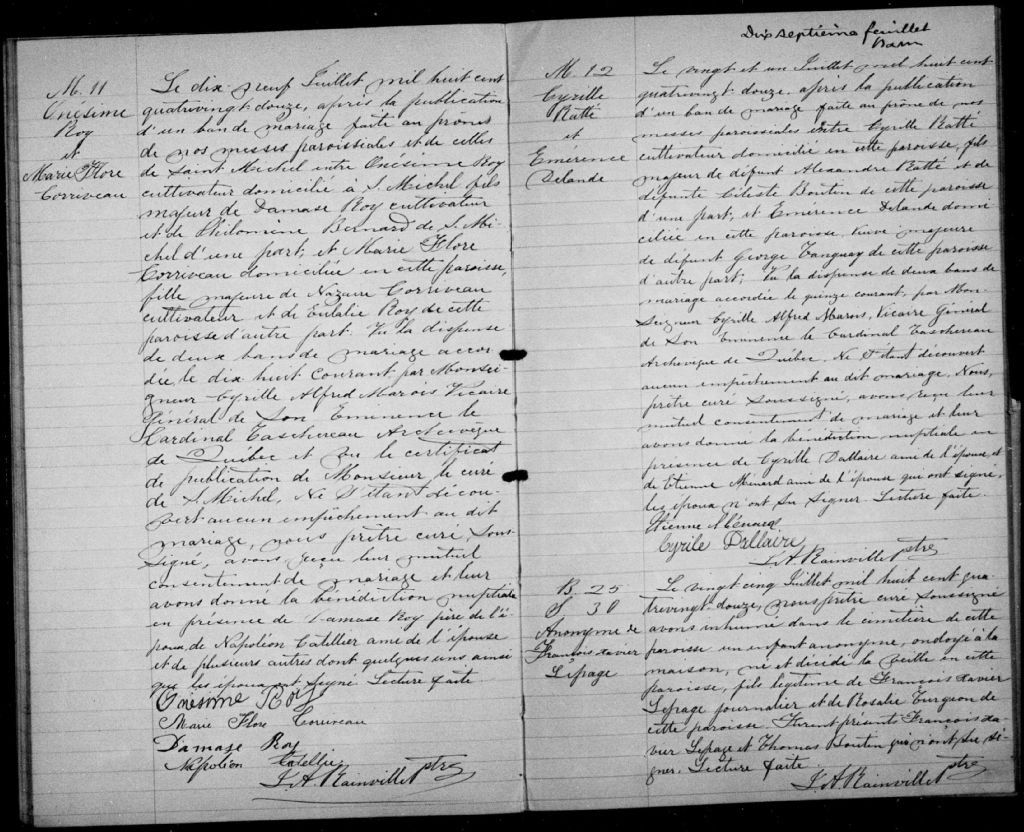 M. 11
Onésime
Roy
et
Marie Flore
Corriveau
Le dix neuf Juillet mil huit cent
quatrevingt douze, après la publication
d'un ban de mariage faite au prones
de nos messes paroissiales et de celles
de Saint Michel entre Onésime Roy
cultivateur domicilié à S. Michel fils
majeur de Damase Roy cultivateur
et de Philomène Bernard de S. Mi-
chel d'une part, et Marie Flore
Corriveau domiciliée en cette paroisse,
fille majeure de Nazaire Corriveau
cultivateur et de Eulalie Roy de cette
paroisse d'autre part. Vu la dispense
de deux bans de mariage accor-
dée le dix huit courant par Monsei-
gneur Cyrille Alfred Marois Vicaire
Général de Son Eminence le
Cardinal Taschereau Archevêque
de Québec et vu le certificat
de publication de Monsieur le curé
de S. Michel, Ne S'étant décou-
vert aucun empêchement au dit
mariage, nous prêtre curé, Sous-
signé, avons reçu leur mutuel
consentement de mariage et leur
avons donné la bénédiction nuptiale
en présence de Damase Roy père de l'é-
poux de Napoléon Catellier ami de l'épouse
et de plusieurs autres dont quelques uns ainsi
que les époux ont signé Lecture faite
Onésime Roy
Marie Flore Corriveau
Damase Roy
Napoléon Catellier
J. A. Rainville Ptre
Dix septième feuillet
M. 12
Cyrille
Ratté
et
Emérence
Delande
Le vingt et un Juillet mil huit cent
quatrevingt douze, après la publication
d'un ban de mariage faite au prône de nos
messes paroissiales entre Cyrille Ratté
cultivateur domicilié en cette paroisse, fils
majeur de défunt Alexandre Ratté et de
défunte Céleste Boutin de cette paroisse
d'une part, et Emérence Delande domi
ciliée en cette paroisse, veuve majeure
de défunt George Tanguay de cette paroisse
d'autre part; Vu la dispense de deux bans de
mariage accordée le quinze courant, par Mon-
Seigneur Cyrille Alfred Marois, Vicaire Général
de Son Eminence le Cardinal Taschereau
Archevêque de Québec, Ne S'étant découvert
aucun empêchement au dit mariage, Nous,
prêtre curé soussigné, avons reçu leur
mutuel consentement de mariage et leur
avons donné la bénédiction nuptiale en
présence de Cyrille Dallaire ami de l'époux, et
de Etienne Ménard ami de l'épouse qui ont signé,
les époux n'ont su signer. Lecture faite.
Etienne Ménard
Cyrile Dallaire
J. A. Rainville Ptre
B. 25
S 30
Anonyme de
François Xavier
Lepage
Le vingt cinq Juillet mil huit cent qua-
trevingt-douze, nous prêtre curé soussigné
avons inhumé dans le cimetière de cette
paroisse un enfant anonyme, ondoyé à la
maison, né et décédé la veille en cette
paroisse, fils légitime de François Xavier
Lepage journalier et de Rosalie Turgeon de
cette paroisse. Furent présent François Xa-
vier Lepage et Thomas Boutin qui n'ont su si-
gner. Lecture faite.
J. A. Rainville Ptre